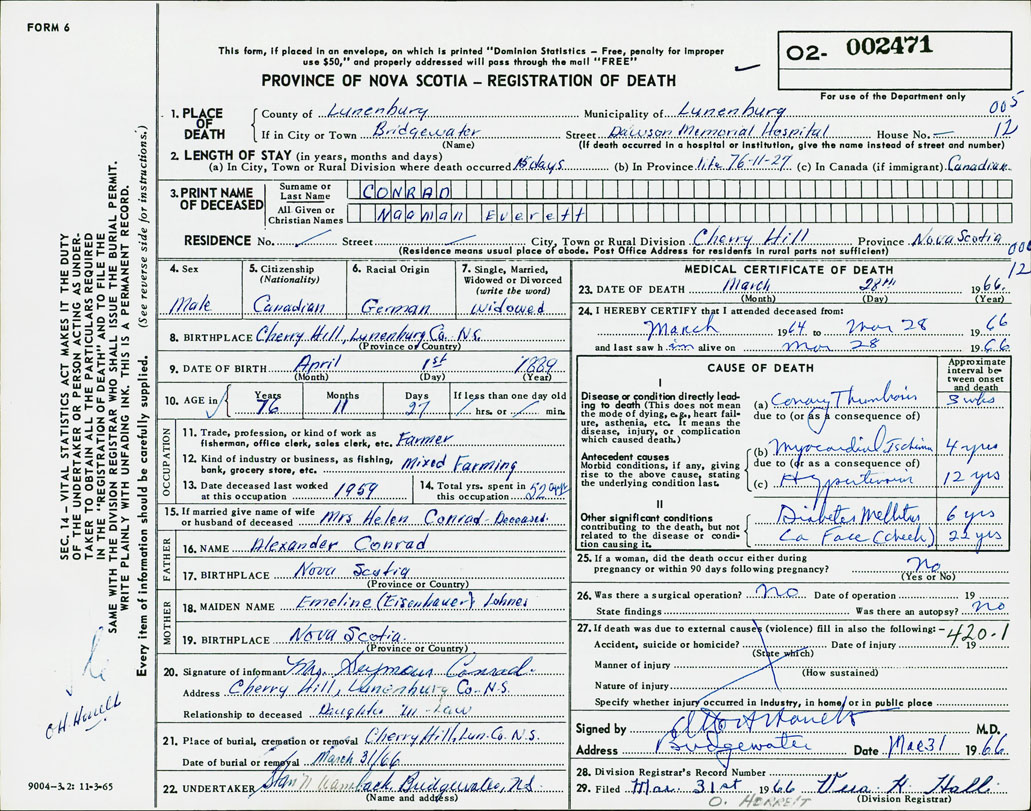 FORM 6
This form, if placed in an envelope, on which is printed "Dominion Statistics – Free, penalty for improper
use $50," and properly addressed will pass through the mail "FREE"
PROVINCE OF NOVA SCOTIA – REGISTRATION OF DEATH
O2- 002471
For use of the Department only
005
12
1. PLACE OF DEATH
County of Lunenburg Municipality of Lunenburg
If in City or Town Bridgewater Street Dawson Memorial Hospital House No. —
(Name) (If death occurred in a hospital or institution, give the name instead of street and number)
2. LENGTH OF STAY (in years, months and days)
(a) In City, Town or Rural Division where death occurred 15 days (b) In Province life 76-11-27 (c) In Canada (if immigrant) Canadian
3. PRINT NAME OF DECEASED
Surname or Last Name CONRAD
All Given or Christian Names Naaman Everett
RESIDENCE No. Street City, Town or Rural Division Cherry Hill Province Nova Scotia
(Residence means usual place of abode. Post Office Address for residents in rural parts not sufficient)
006
12
4. Sex
Male
5. Citizenship
(Nationality)
Canadian
6. Racial Origin
German
7. Single, Married,
Widowed or Divorced
(write the word)
Widowed
8. BIRTHPLACE Cherry Hill, Lunenburg Co. N.S.
(Province or Country)
9. DATE OF BIRTH April 1st 1889
(Month) (Day) (Year)
10. AGE in
Years Months Days If less than one day old
76 11 27 hrs. or min.
OCCUPATION
11. Trade, profession, or kind of work as
fisherman, office clerk, sales clerk, etc. Farmer
12. Kind of industry or business, as fishing,
bank, grocery store, etc. Mixed Farming
13. Date deceased last worked
at this occupation 1959
14. Total yrs. spent in
this occupation 52
15. If married give name of wife
or husband of deceased Mrs Helen Conrad - Deceased.
FATHER
16. NAME Alexander Conrad
17. BIRTHPLACE Nova Scotia
(Province or Country)
MOTHER
18. MAIDEN NAME Emeline (Eisenhauer) Lohnes
19. BIRTHPLACE Nova Scotia.
(Province or Country)
20. Signature of informant Mrs. Seymour Conrad.
Address Cherry Hill, Lunenburg Co. N.S.
Relationship to deceased Daughter-in-Law
21. Place of burial, cremation or removal Cherry Hill, Lun. Co. N.S.
Date of burial or removal March 31/66
22. UNDERTAKER Bridgewater, N.S.
(Name and address)
MEDICAL CERTIFICATE OF DEATH
23. DATE OF DEATH March 28th 1966.
(Month) (Day) (Year)
24. I HEREBY CERTIFY that I attended deceased from:
March 1964 to Mar 28 1966
and last saw him alive on Mar 28 1966
CAUSE OF DEATH
Approximate
interval be-
tween onset
and death
I
Disease or condition directly lead-
ing to death (This does not mean
the mode of dying, e.g., heart fail-
ure, asthenia, etc. It means the
disease, injury, or complication
which caused death.)
(a) Coronary Thrombosis 3 wks
due to (or as a consequence of)
Antecedent causes
Morbid conditions, if any, giving
rise to the above cause, stating
the underlying condition last.
(b) Myocardial Ischemia 4 yrs
due to (or as a consequence of)
(c) Hypertension 12 yrs
II
Other significant conditions
contributing to the death, but not
related to the disease or condi-
tion causing it.
Diabetes Mellitus 6 yrs
Ca Face (cheek) 2 yrs
25. If a woman, did the death occur either during
pregnancy or within 90 days following pregnancy? No
(Yes or No)
26. Was there a surgical operation? No Date of operation 19
State findings Was there an autopsy? No
27. If death was due to external causes (violence) fill in also the following: -420.1
Accident, suicide or homicide? Date of injury 19
(State which)
Manner of injury
(How sustained)
Nature of injury
Specify whether injury occurred in industry, in home/ or in public place
Signed by M.D.
Address Bridgewater Date Mar 31 1966.
28. Division Registrar's Record Number
29. Filed Mar. 31st 1966 Vera K. Hall
(Division Registrar)
SEC. 14 – VITAL STATISTICS ACT MAKES IT THE DUTY
OF THE UNDERTAKER OR PERSON ACTING AS UNDER-
TAKER TO OBTAIN ALL THE PARTICULARS REQUIRED
IN THE "REGISTRATION OF DEATH" AND TO FILE THE
SAME WITH THE DIVISION REGISTRAR WHO SHALL ISSUE THE BURIAL PERMIT.
WRITE PLAINLY WITH UNFADING INK. THIS IS A PERMANENT RECORD.
Every item of information should be carefully supplied. (See reverse side for instructions.)
9004-3.2: 11-3-65